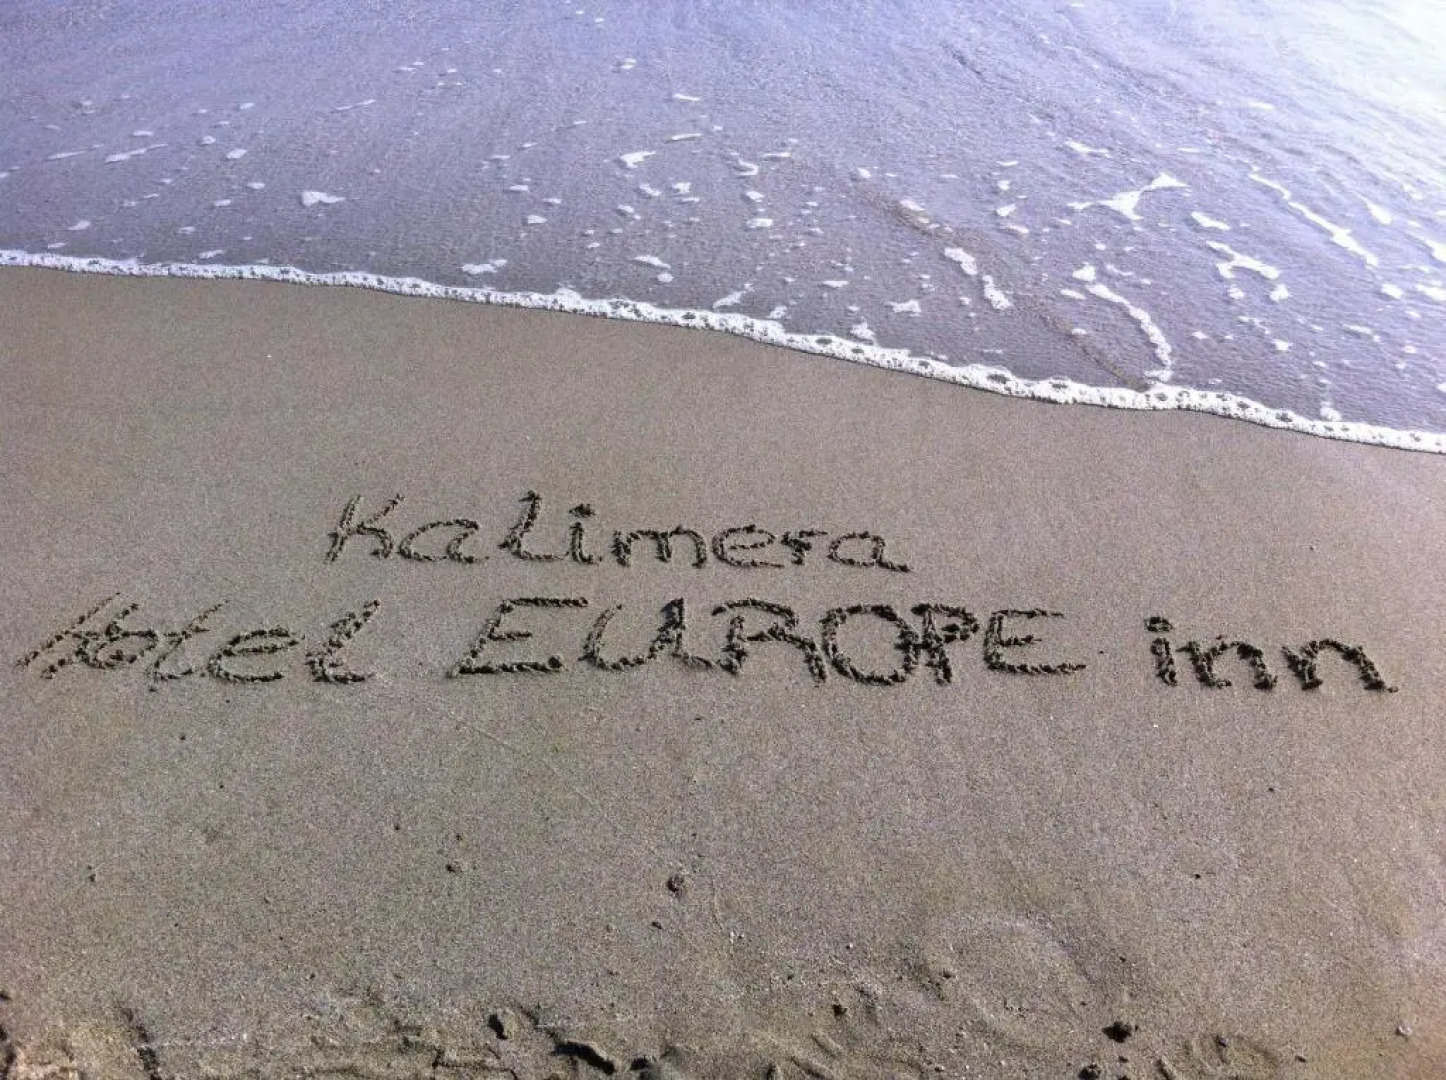 Kalimera
Hotel EUROPE inn